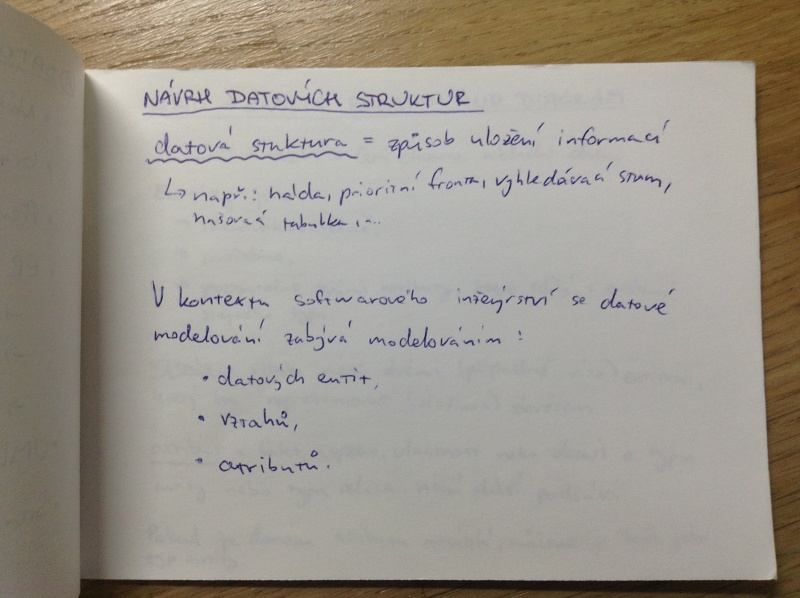 NÁVRH DATOVÝCH STRUKTUR
datová stuktura = způsob uložení informací
↳ např.: halda, prioritní fronta, vyhledávací strom,
hašovací tabulka, ...
V kontextu softwarového inženýrství se datové
modelování zabývá modelováním:
• datových entit,
• vztahů,
• atributů.